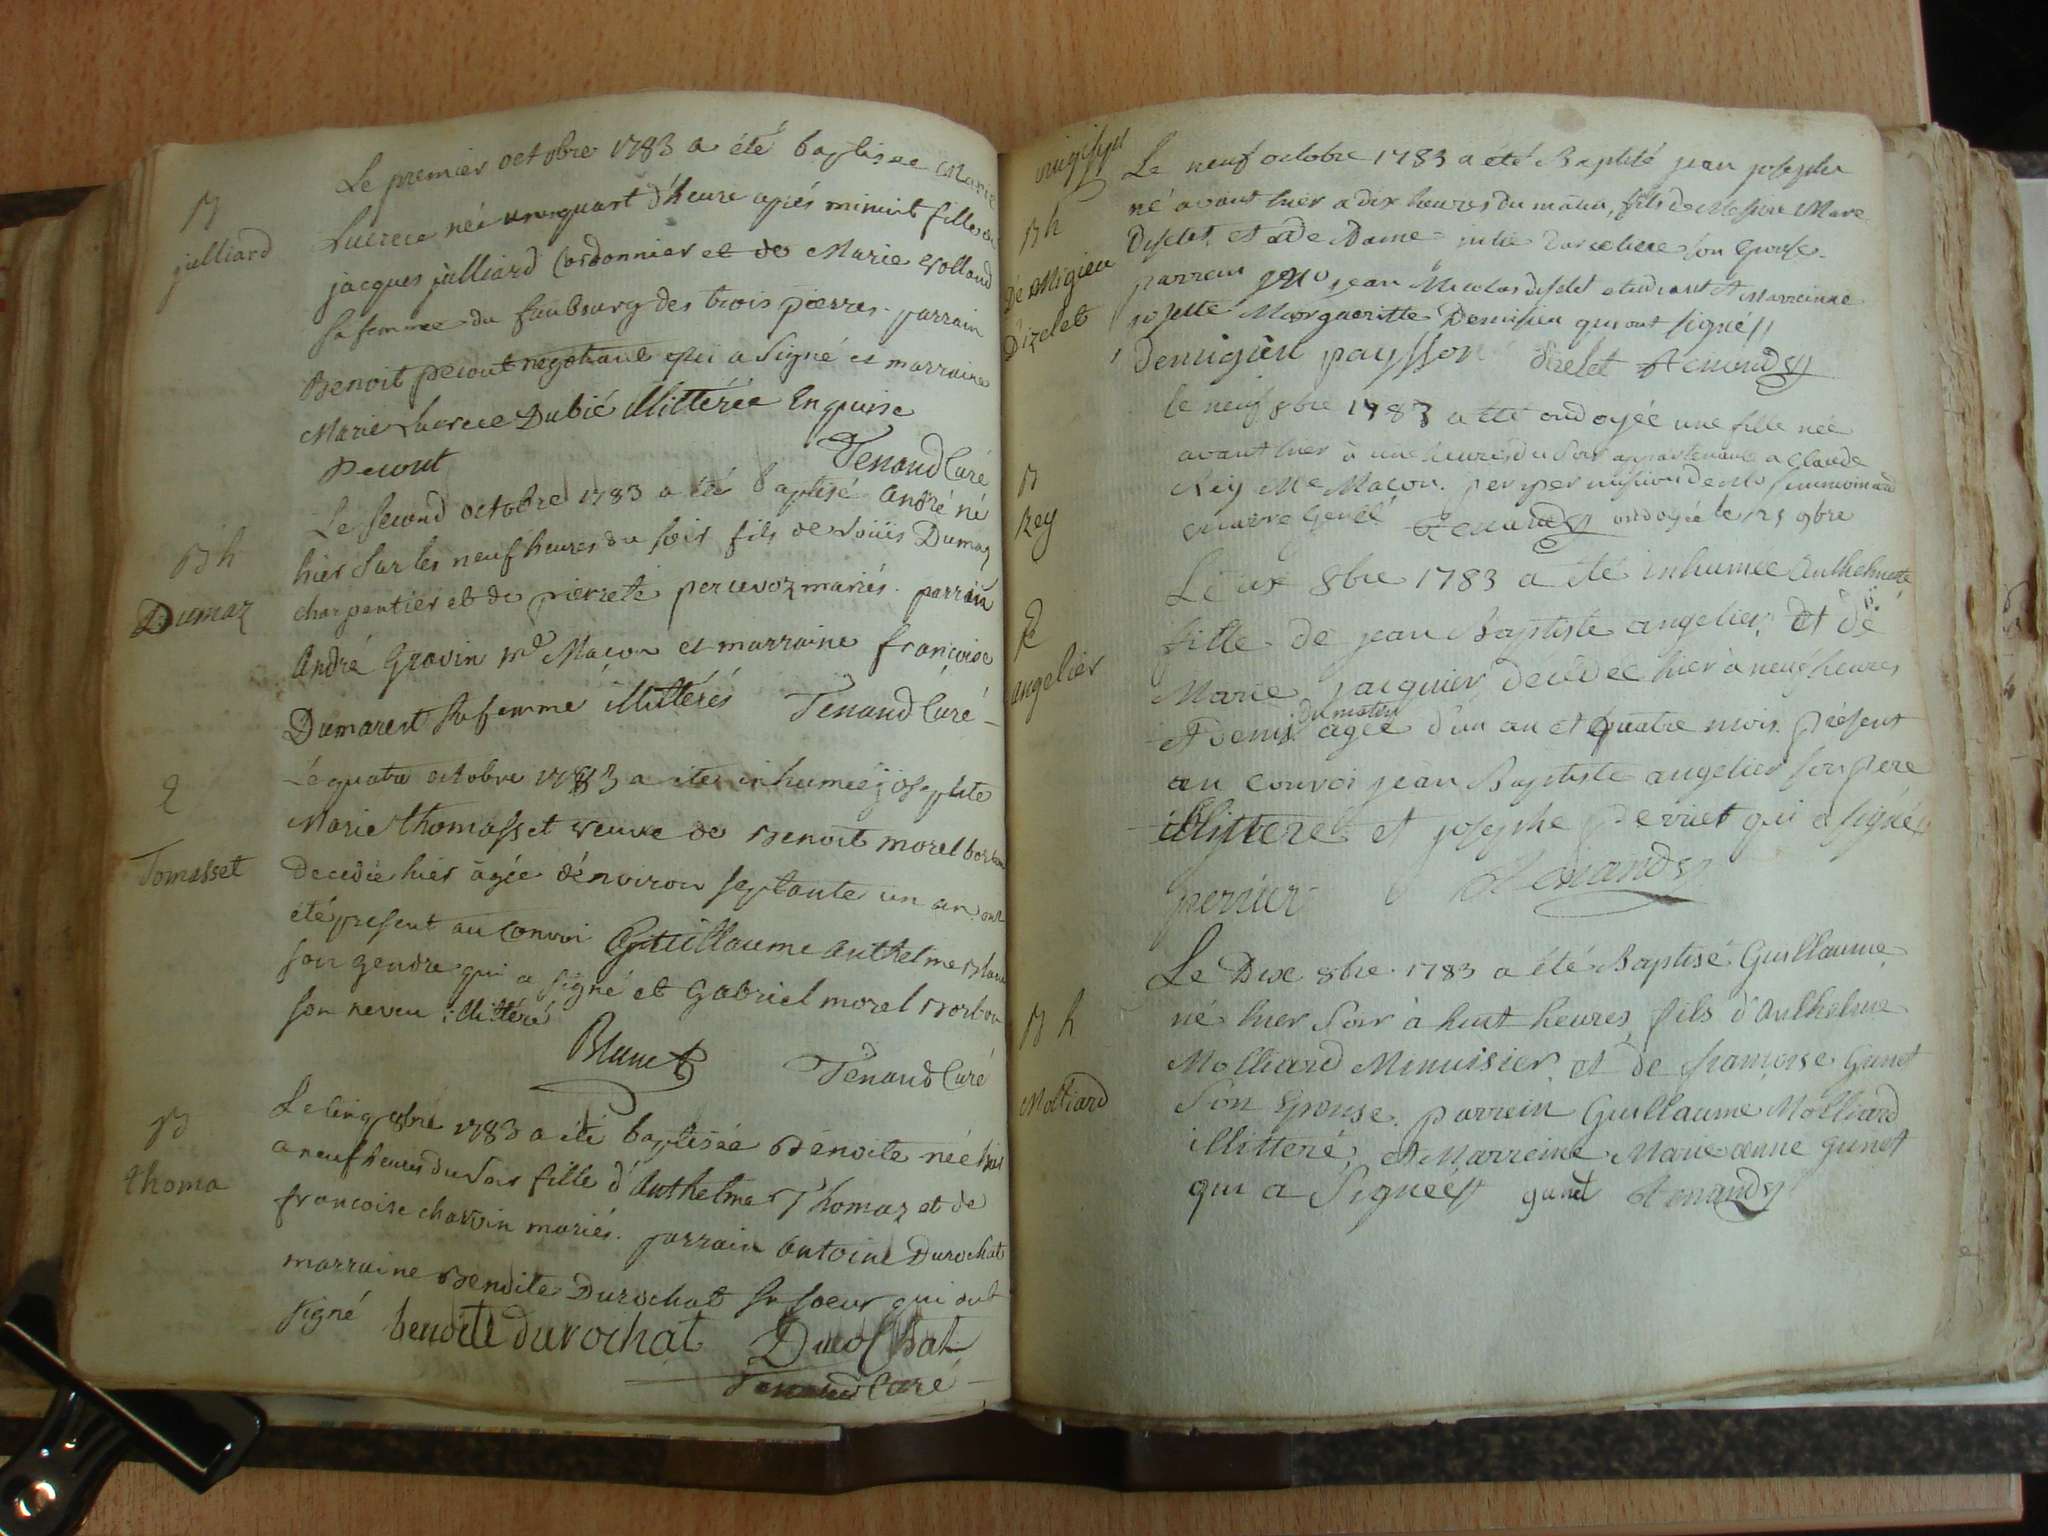 B
julliard
Le premier octobre 1783 a été baptisée Marie
Lucrece née un quart d'heure après minuit fille de
jacques julliard Cordonnier et de Marie Volland
sa femme du faubourg des trois pierres. parrain
Benoit pecout negotiant qui a signé et marraine
Marie Lucrece Dubié illitérée Enquise
Pecout Tenand Curé
B h
Dumaz
Le second octobre 1783 a été baptisé André né
hier sur les neuf heures du soir fils de Loüis Dumaz
charpentier et de pierrete percevoz mariés. parrain
André Gravin md Maçon et marraine francoise
Dumarest sa femme illittérés Tenand Curé
Tomasset
Le quatre octobre 1783 a été inhumée josephte
Marie thomasset veuve de Benoit morel
Decedée hier âgée d'environ septante un an ont
été present au Convoi Guillaume Anthelme Blanc
son gendre qui a signé et Gabriel morel
son neveu illittéré
Blanc Tenand Curé
B
thoma
Le cinq 8bre 1783 a été baptisée Benoite née hier
a neuf heures du soir fille d'Anthelme Thomaz et de
francoise charvin mariés. parrain Antoine Durochat
marraine Benoite Durochat sa soeur qui ont
signé benoite durochat Durochat
Tenand Curé
B h
De Migieu
D'izelet
Le neuf octobre 1783 a été Baptisé jean josephe
né avant hier a dix heures du matin, fils de Messire Marc
et de Dame julie son Epouse.
parrain jean Nicolas etudiant et Marrainne
Margueritte qui ont signé
Demigieu paysson Tenand
B
Rey
le neuf 8bre 1783 a été ondoyée une fille née
avant hier à une heure du Soir appartenante a Claude
Rey Me Macon. par permission de
Tenand ondoyée le 9bre
angelier
Le dix 8bre 1783 a été inhumée Anthelmette
fille de jean Baptiste angelier, et de
Marie jacquier, décédée hier à neuf heures
du matin
âgée d'un an et quatre mois. présent
au convoi jean Baptiste angelier son pere
illittéré et josephe qui a signé
perrier Tenand
B h
Molliard
Le Dix 8bre 1783 a été Baptisé Guillaume
né hier soir à huit heures, fils d'Anthelme
Molliard Menuisier, et de françoise Gunet
Son Epouse. parrein Guillaume Molliard
illitteré, et Marreine Marie anne gunet
qui a Signée gunet Tenand